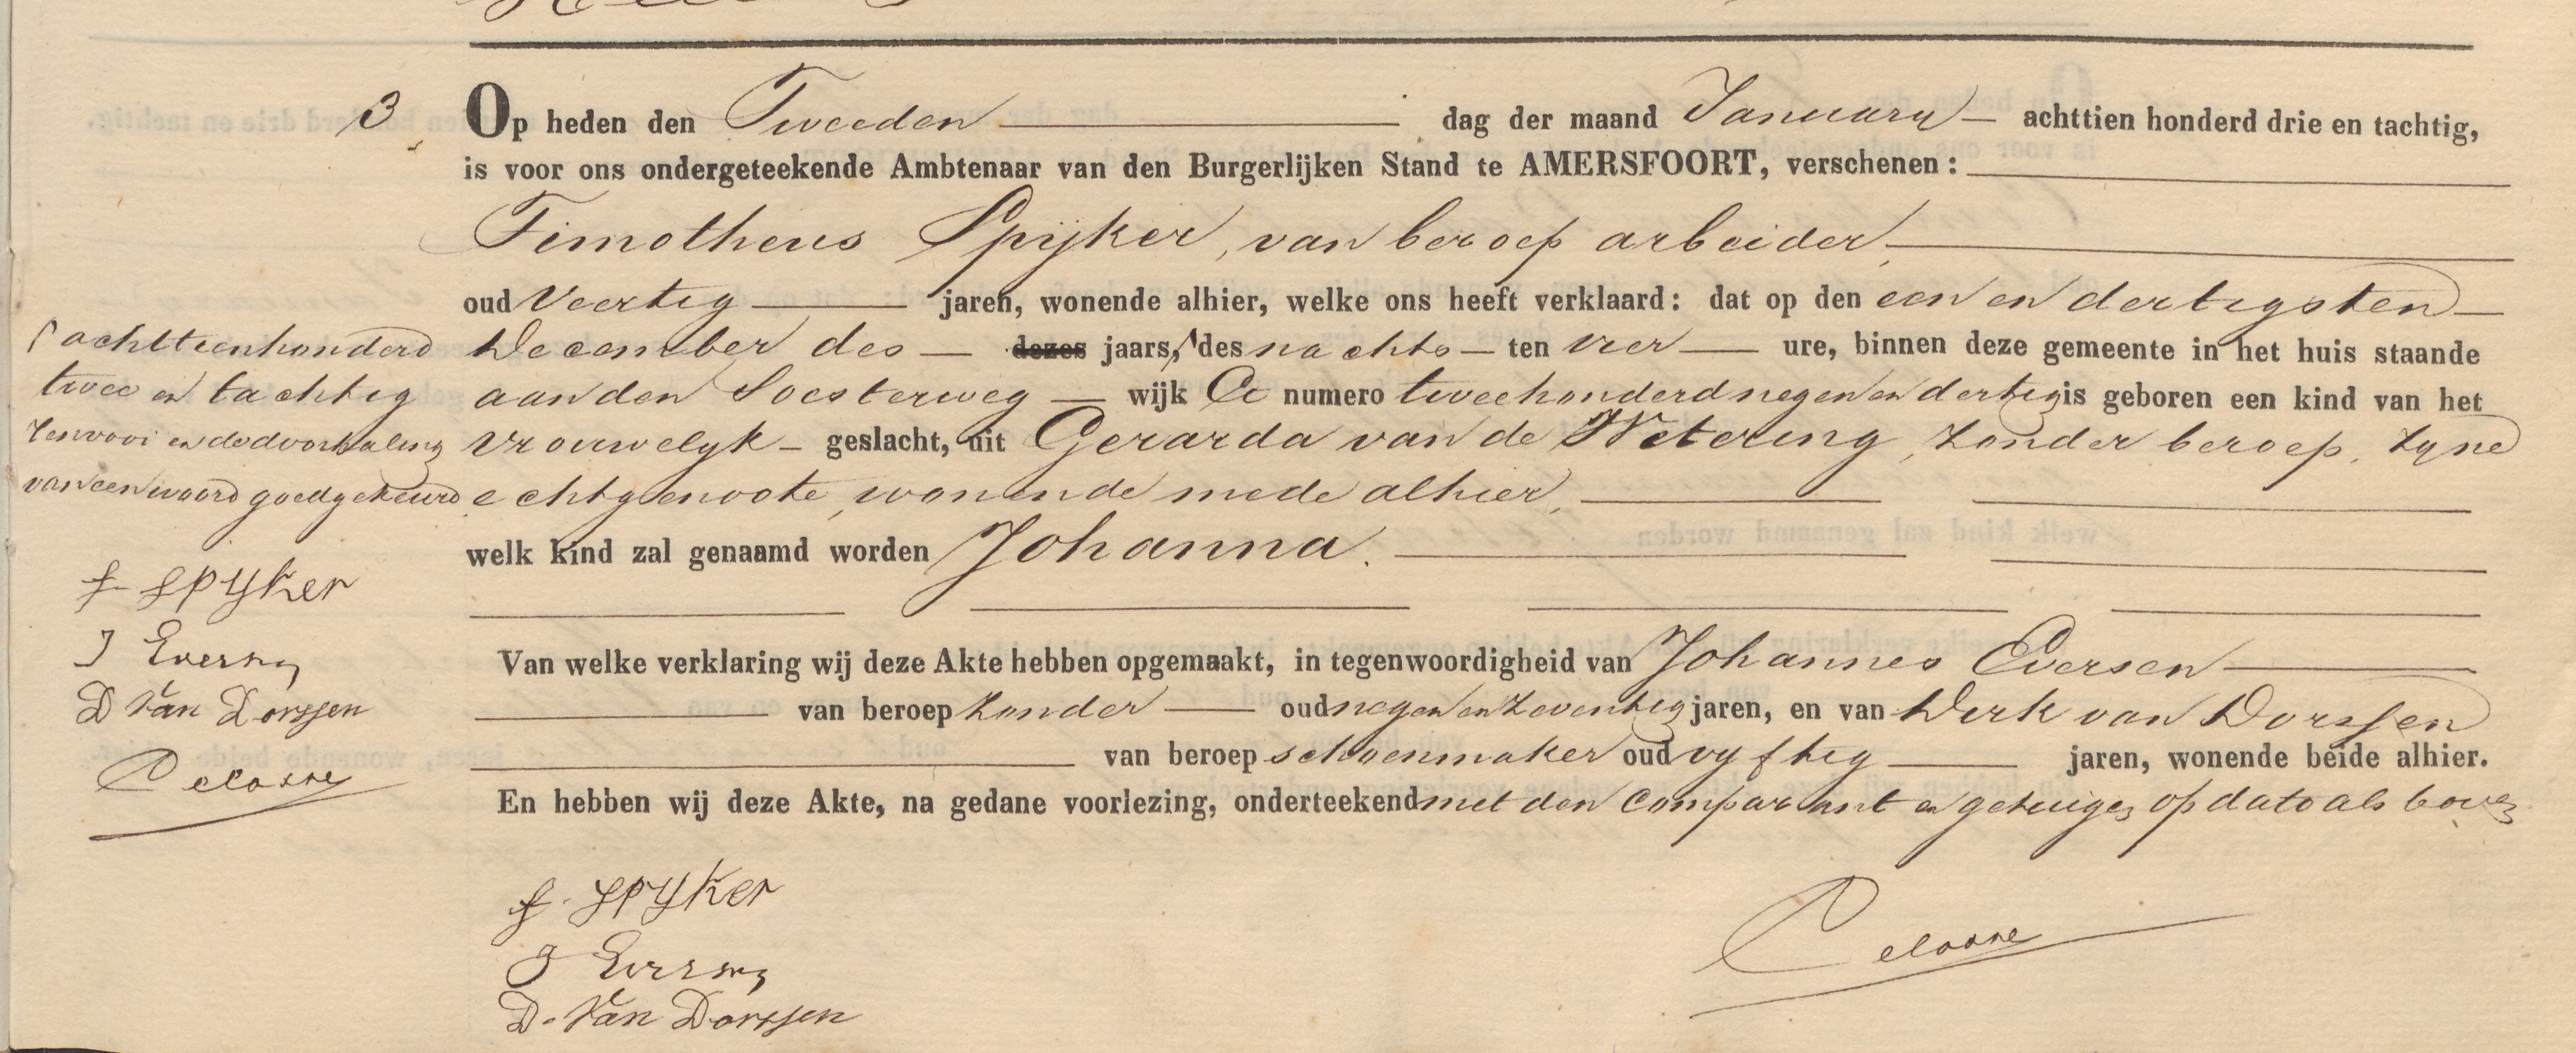 3
Op heden den Tweeden dag der maand January achttien honderd drie en tachtig,
is voor ons ondergeteekende Ambtenaar van den Burgerlijken Stand te AMERSFOORT, verschenen:
Timotheus Spijker, van beroep arbeider,
oud Veertig jaren, wonende alhier, welke ons heeft verklaard: dat op den een en dertigsten
December des dezes jaars, des nachts ten vier ure, binnen deze gemeente in het huis staande
aan den Soesterweg wijk numero tweehonderd negen en dertig is geboren een kind van het
vrouwelyk geslacht, uit Gerarda van de Wetering, zonder beroep, zyne
echtgenoote, wonende mede alhier,
welk kind zal genaamd worden Johanna.
Van welke verklaring wij deze Akte hebben opgemaakt, in tegenwoordigheid van Johannes Eversen
van beroep zonder oud negen en zeventig jaren, en van Dirk van Dorssen
van beroep schoenmaker oud vyftig jaren, wonende beide alhier.
En hebben wij deze Akte, na gedane voorlezing, onderteekend met den comparant en getuigen op dato als boven
achttienhonderd
twee en tachtig
en doorhaling
van een woord goedgekeurd
Spyker
J Eversen
D Van Dorssen
Spyker
J Eversen
D. Van Dorssen